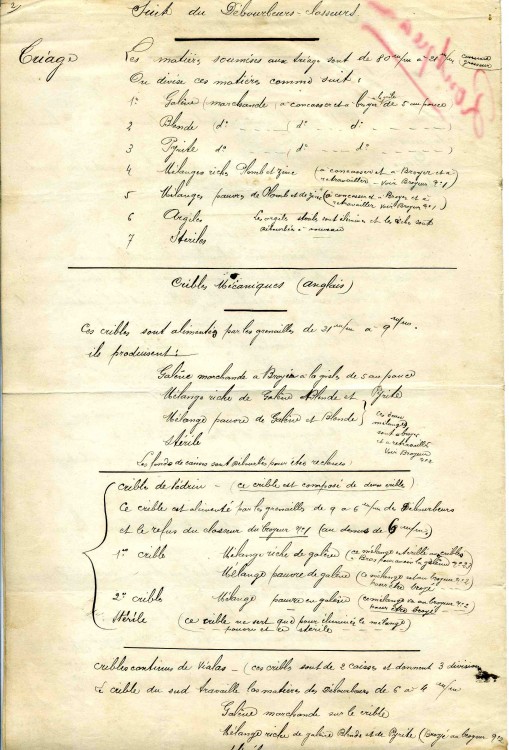 2
Suit du Débourbeurs-classeurs
Triage
Les matières soumises aux triage sont de 80 m/m a 31 m/m
On divise ces matières comme suit:
1° Galène (marchande) (a concasser et a broyer de 5 au pouce
2 Blende (d° d° d° )
3 Pyrite d° (d° d° )
4 Mélanges riches Plomb et Zinc (a concasser et a Broyer et a
retravailler - Voir Broyeur N° 1)
5 Mélanges pauvres de Plomb et de Zinc (a concasser et a Broyer et a
retravailler Voir Broyeur N° 1)
6 Argiles Les argiles stériles sont éliminées et le riche sont
débourbés a nouveau
7 Stériles
Cribles Mécaniques (anglais)
Ces cribles sont alimentés par les grenailles de 31 m/m a 9 m/m.
ils produisent:
Galène marchande a Broyer a la grille de 5 au pouce
Mélange riche de Galène Blende et Pyrite
Mélange pauvre de Galène et Blende
Stérile
ces deux
mélanges
sont a broyer
et a retravailler
Voir Broyeur
N° 2
Les fonds de caisses sont débourbés pour être reclassés
crible de Pédrin - (ce crible est composé de deux crible)
Ce crible est alimenté par les grenailles de 9 a 6 m/m des Débourbeurs
et le refus du classeur du broyeur N° 1 (au dessus de 6 m/m)
1er crible Mélange riche de galène (ce mélange
Mélange pauvre de galène (ce mélange est au broyeur N° 2
pour être broyé
2e crible Mélange pauvre en galène (ce mélange va au broyeur N° 2
pour être broyé)
Stérile (ce crible ne sert que pour éliminer le mélange
pauvre et le stérile
cribles continus de Vialas - (ces crible sont de 2 caisses et donnent 3 divisions
Le crible du sud travaille les matières des Débourbeurs de 6 a 4 m/m
Galène marchande sur le crible
Mélange riche de galène Blende et de Pyrite (broyé au broyeur N° 2